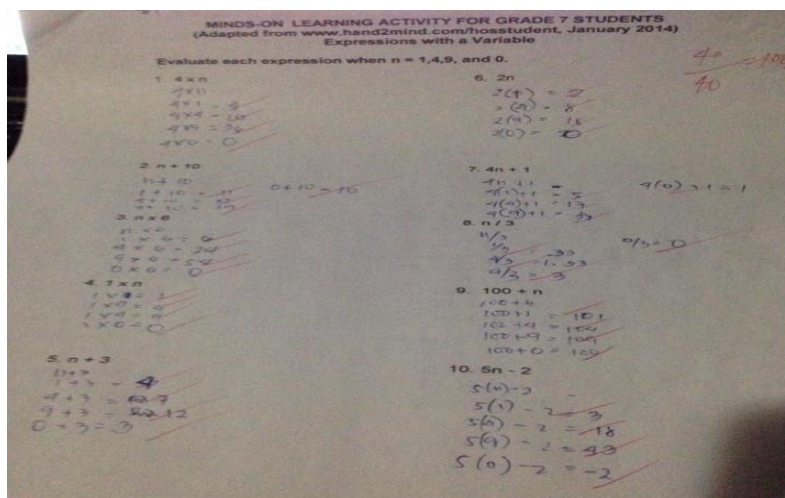 MINDS-ON LEARNING ACTIVITY FOR GRADE 7 STUDENTS
(Adapted from www.hand2mind.com/hosstudent, January 2014)
Expressions with a Variable
Evaluate each expression when n = 1,4,9, and 0.
40
40
1. 4 x n
4xn
4x1 = 4
4x4 = 16
4x9 = 36
4x0 = 0
2. n + 10
n + 10
1 + 10 = 11
0 + 10 = 10
3. n x 6
n x 6
1 x 6 = 6
4 x 6 = 24
9 x 6 = 54
0 x 6 = 0
4. 1 x n
1 x 0 = 0
5. n + 3
n+3
1 + 3 = 4
4 + 3 = 7
9 + 3 = 12
0 + 3 = 3
6. 2n
2(1) = 2
2(4) = 8
2(9) = 18
2(0) = 0
7. 4n + 1
4n + 1 =
4(1)+1 = 5
4(4)+1 = 17
4(9)+1 = 37
4(0)+1 = 1
8. n / 3
n/3
1/3 = .33
4/3 = 1.33
9/3 = 3
0/3 = 0
9. 100 + n
100+n
100+1 = 101
100+4 = 104
100+9 = 109
100+0 = 100
10. 5n - 2
5(n)-2
5(1) - 2 = 3
5(4) - 2 = 18
5(9) - 2 = 43
5(0) - 2 = -2